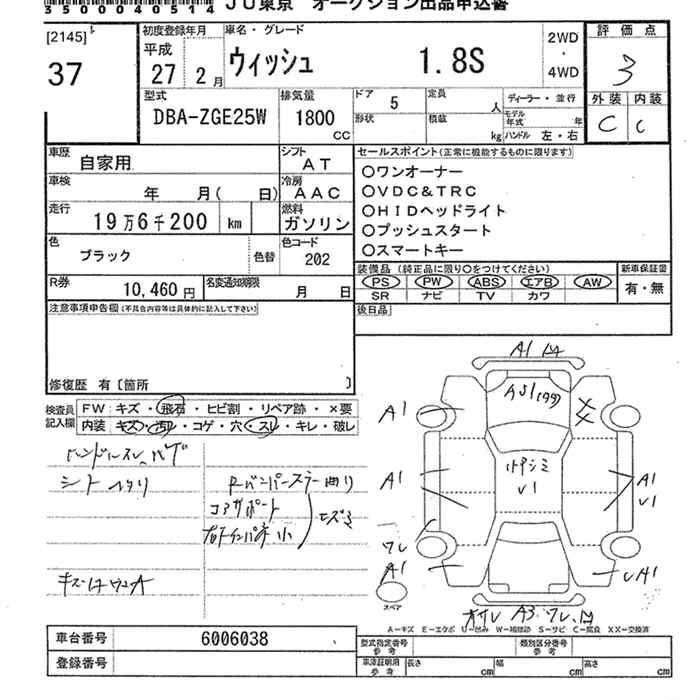 35000040514 JU東京 オークション出品申込書
[2145]
37
初度登録年月
平成
27年 2月
車名・グレード
ウィッシュ 1.8S
2WD
・
4WD
評価点
3
外装 内装
C C
型式
DBA-ZGE25W
排気量
1800
CC
ドア 5
形状
定員 人
積載 kg
ディーラー・並行
モデル年式 年
ハンドル 左・右
車歴 自家用
シフト AT
車検 年 月( 日)
冷房 AAC
走行 19万6千200 km
燃料 ガソリン
色 ブラック 色替
色コード 202
R券 10,460円
名変通知期限 月 日
セールスポイント(正常に機能するものに限ります)
○ワンオーナー
○VDC&TRC
○HIDヘッドライト
○プッシュスタート
○スマートキー
装備品 (純正品に限り○をつけてください)
PS PW ABS エアB AW
SR ナビ TV カワ
新車保証書
有・無
後日品
注意事項申告欄(不具合内容等は具体的に記入して下さい)
修復歴 有〔箇所 〕
検査員記入欄
FW:キズ・飛石・ヒビ割・リペア跡・×要
内装:キズ・汚れ・コゲ・穴・スレ・キレ・破レ
ハンドルスレ、ハゲ
シートヘタリ
コアサポート
キズ
A1
A1
A1
A1
V1
V1
A1
スペア
A-キズ E-エクボ U-凹み W-補修跡 S-サビ C-腐食 XX-交換済
車台番号 6006038
登録番号
型式指定番号 参考
類別区分番号 参考
車庫証明用 参考
長さ cm
幅 cm
高さ cm